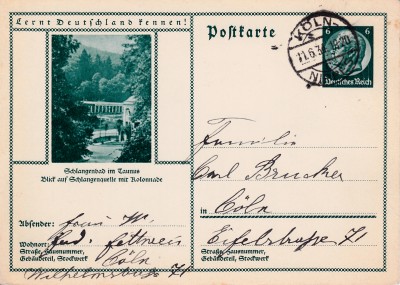 Lernt Deutschland kennen!
Postkarte
KÖLN
11.6.3
6 6
Deutsches Reich
Schlangenbad im Taunus
Blick auf Schlangenquelle mit Kolonnade
Familie
Carl Brucker
in Cöln
Eifelstraße 71
Straße, Hausnummer,
Gebäudeteil, Stockwerk
Absender: Frau M.
Wohnort:
Cöln
Straße, Hausnummer,
Gebäudeteil, Stockwerk
71